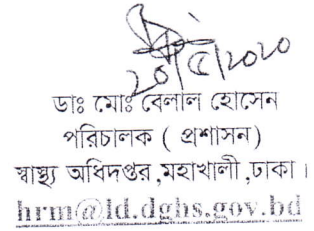 20/5/2020
ডাঃ মোঃ বেলাল হোসেন
পরিচালক ( প্রশাসন)
স্বাস্থ্য অধিদপ্তর ,মহাখালী ,ঢাকা ।
hrm@ld.dghs.gov.bd